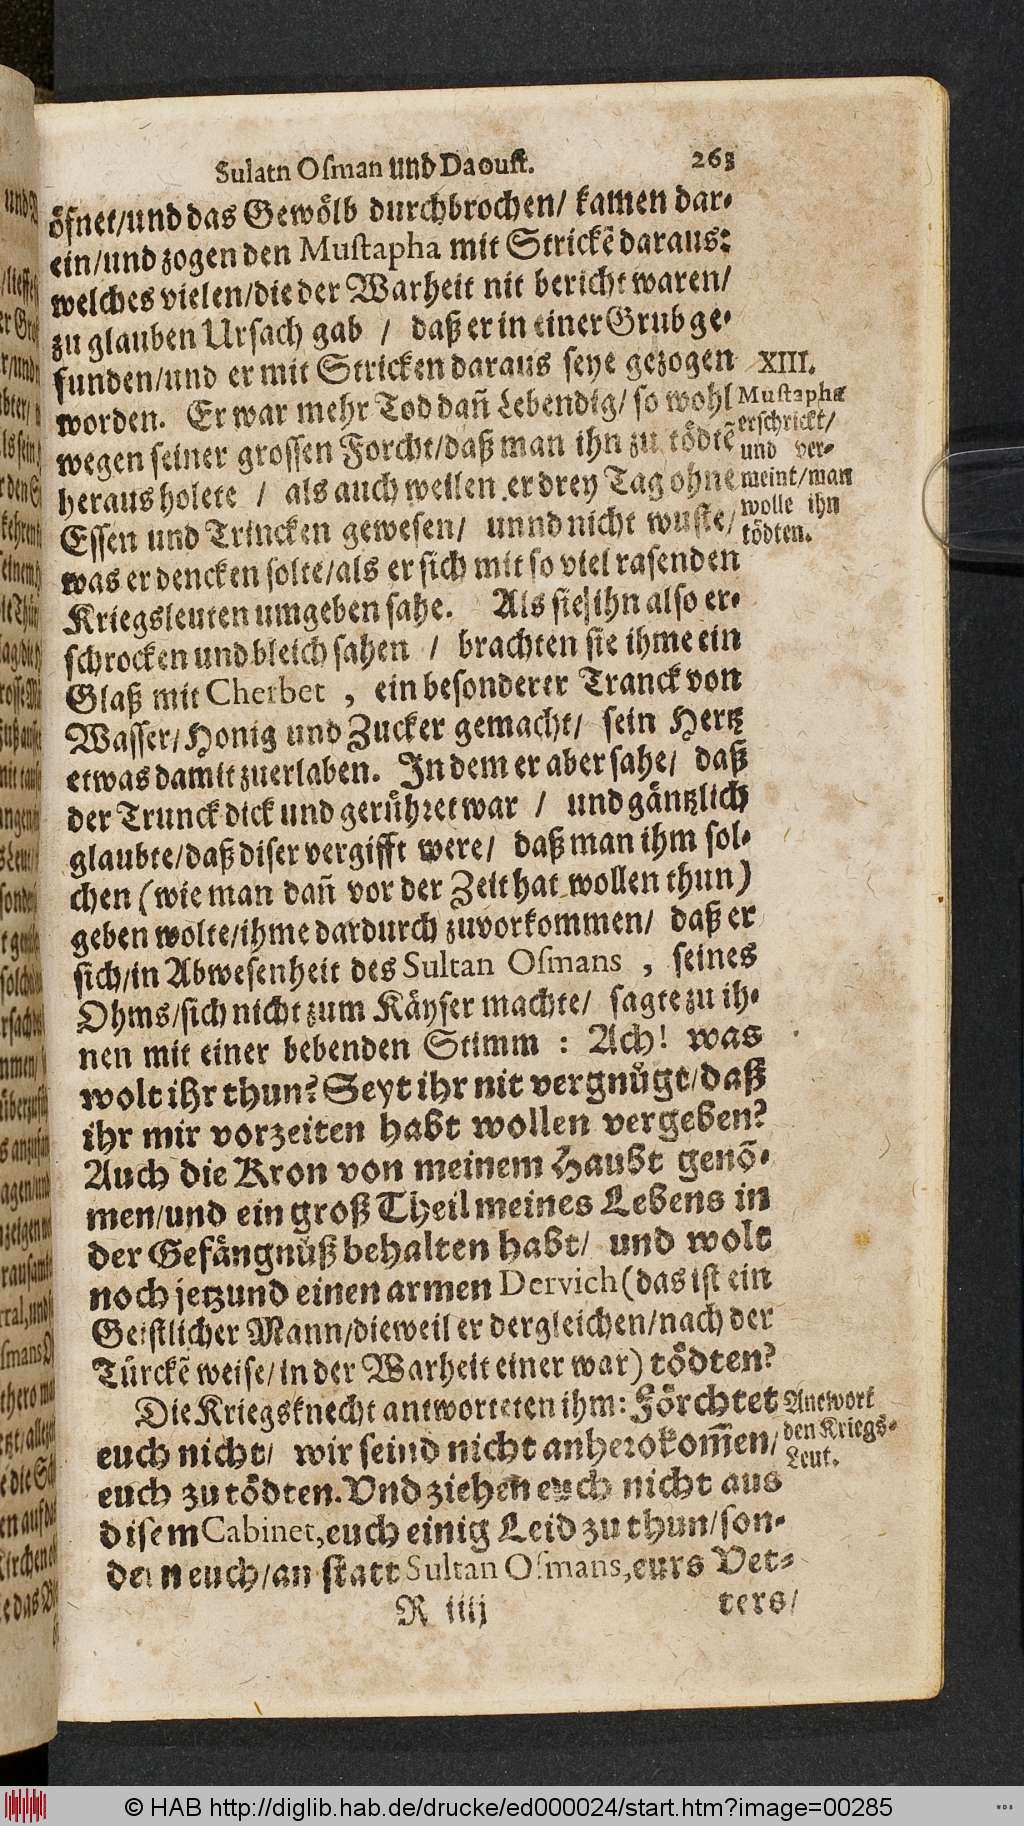 Sulatn Oſman und Daouſt. 263
öfnet/und das Gewölb durchbrochen/ kamen dar-
ein/und zogen den Muſtapha mit Strickẽ daraus:
welches vielen/die der Warheit nit bericht waren/
zu glauben Urſach gab / daß er in einer Grub ge-
funden/und er mit Stricken daraus ſeye gezogen
worden. Er war mehr Tod dañ Lebendig/ ſo wohl
wegen ſeiner groſſen Forcht/daß man ihn zu tödtẽ
heraus holete / als auch weilen er drey Tag ohne
Eſſen und Trincken geweſen/ unnd nicht wuſte/
was er dencken ſolte/als er ſich mit ſo viel raſenden
Kriegsleuten umgeben ſahe. Als ſie ihn alſo er-
ſchrocken und bleich ſahen / brachten ſie ihme ein
Glaß mit Cherbet , ein beſonderer Tranck von
Waſſer/Honig und Zucker gemacht/ ſein Hertz
etwas damit zuerlaben. In dem er aber ſahe/ daß
der Trunck dick und gerühret war / und gäntzlich
glaubte/daß diſer vergifft were/ daß man ihm ſol-
chen (wie man dañ vor der Zeit hat wollen thun)
geben wolte/ihme dardurch zuvorkommen/ daß er
ſich/in Abweſenheit des Sultan Oſmans , ſeines
Ohms/ſich nicht zum Käyſer machte/ ſagte zu ih-
nen mit einer bebenden Stimm : Ach! was
wolt ihr thun? Seyt ihr nit vergnügt/daß
ihr mir vorzeiten habt wollen vergeben?
Auch die Kron von meinem Haubt genõ-
men/und ein groß Theil meines Lebens in
der Gefängnüß behalten habt/ und wolt
noch jetzund einen armen Dervich (das iſt ein
Geiſtlicher Mann/dieweil er dergleichen/nach der
Türckẽ weiſe/in der Warheit einer war) tödten?
Die Kriegsknecht antworteten ihm: Förchtet
euch nicht/ wir ſeind nicht anherokom̃en/
euch zu tödten. Und ziehen euch nicht aus
diſem Cabinet, euch einig Leid zu thun/ſon-
dern euch/an ſtatt Sultan Oſmans, eurs Vet-
R iiij ters/
XIII.
Muſtapha
erſchrickt/
und ver-
meint/man
wolle ihn
tödten.
Antwort
den Kriegs-
Leut.
© HAB http://diglib.hab.de/drucke/ed000024/start.htm?image=00285